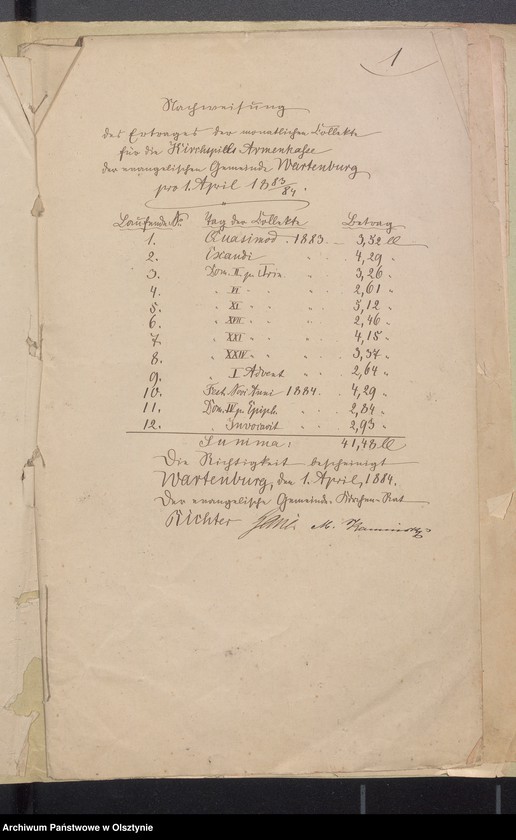 1
Nachweisung
des Ertrages der monatlichen Collekte
für die Kirchspills Armenkasse
der evangelischen Gemeinde Wartenburg
pro 1. April 1883/84.
Laufende No. Tag der Collekte Betrag
1. Quasimod. 1883. 3,52 M
2. Exaudi " 4,29 "
3. Dom. II p. Trin. " 3,26 "
4. " VI " " " 2,61 "
5. " XI " " " 5,12 "
6. " XVII " " " 2,46 "
7. " XXI " " " 4,15 "
8. " XXIV " " " 3,37 "
9. " I Advent " 2,64 "
10. Fest. Novi Anni 1884. 4,29 "
11. Dom. IV p. Epiph. " 2,84 "
12. " Invocavit " 2,93 "
Summa: 41,48 M
Die Richtigkeit bescheinigt
Wartenburg, den 1. April, 1884.
Der evangelische Gemeinde-Kirchen-Rat
Richter M. Kaminsky
Archiwum Państwowe w Olsztynie